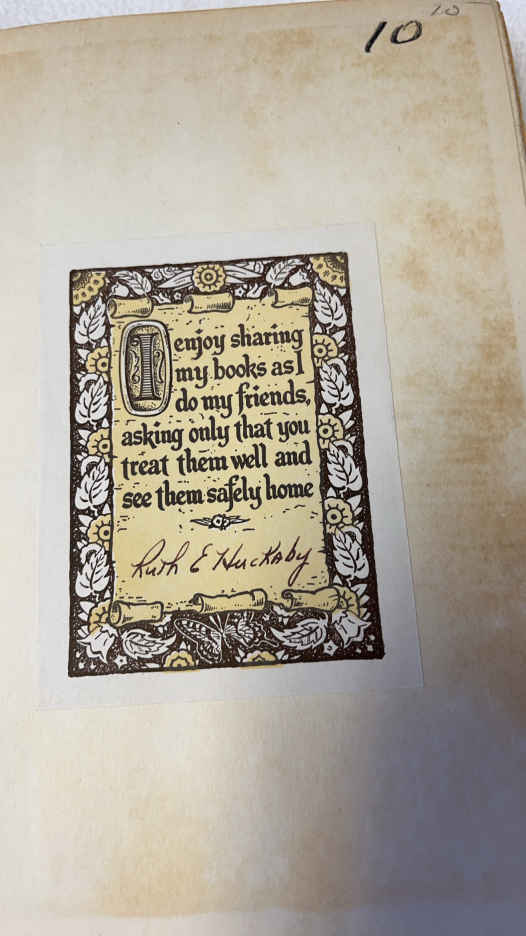 10
10
I enjoy sharing
my books as I
do my friends,
asking only that you
treat them well and
see them safely home
Ruth E Huckaby